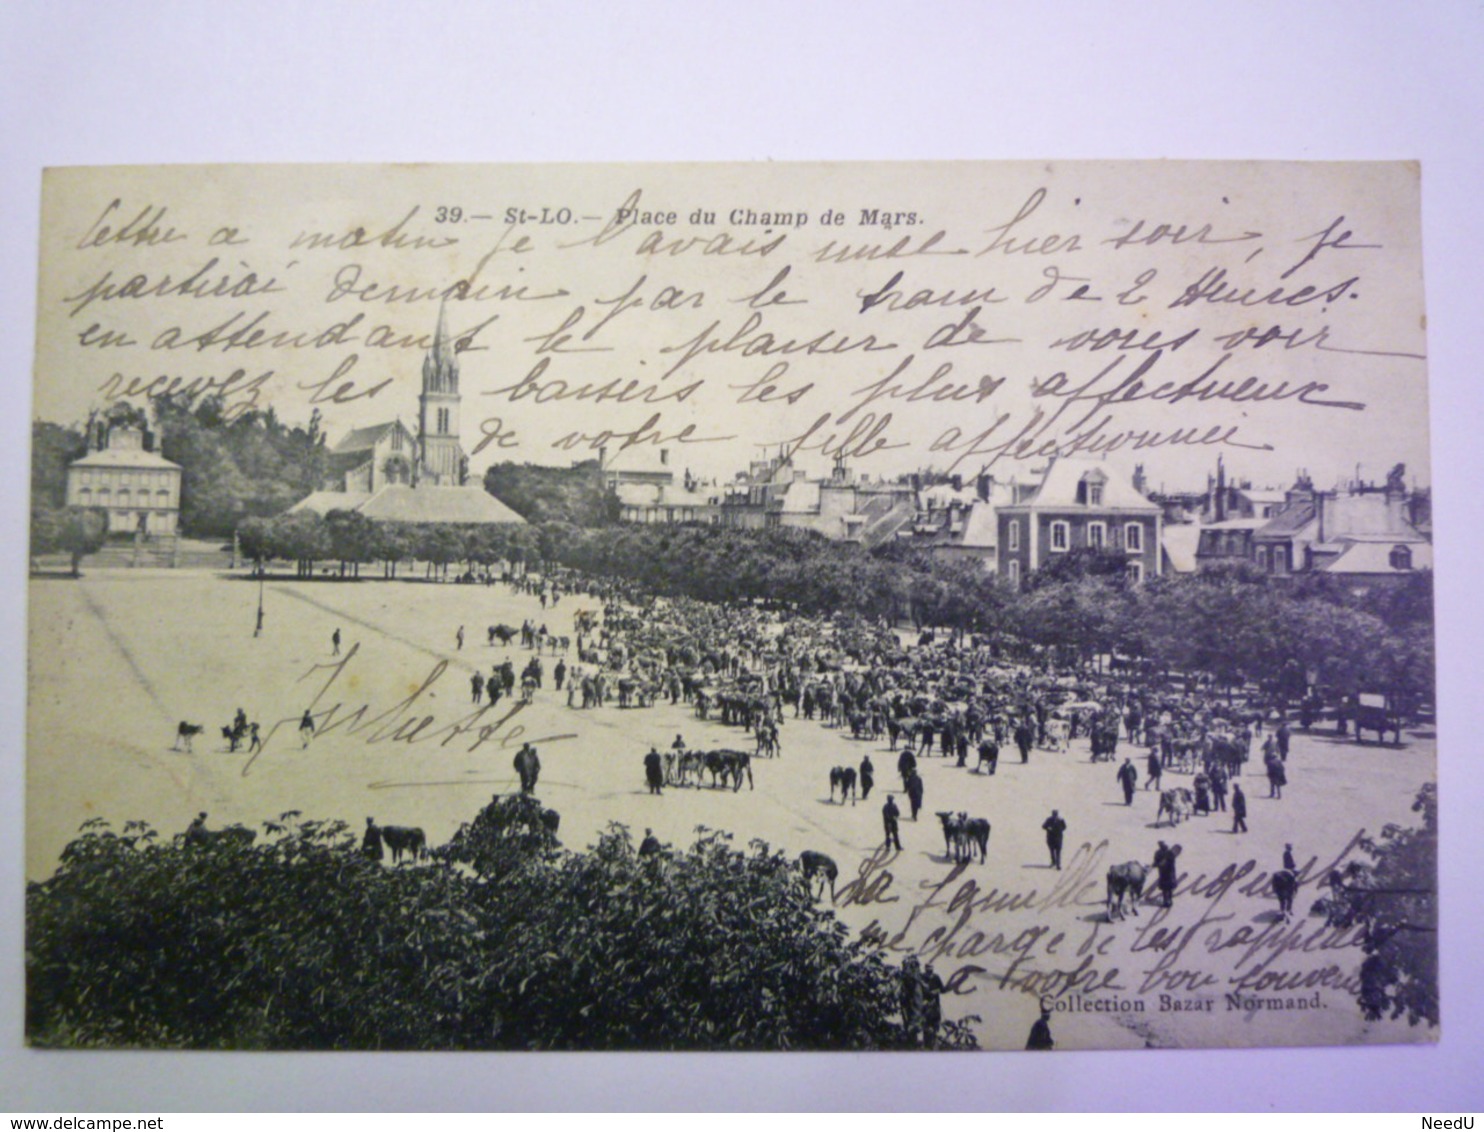 39. — St-LO. — Place du Champ de Mars.
lettre a matin je l'avais mise hier soir, je
partirai demain par le train de 2 Heures.
en attendant le plaisir de vous voir
recevez les baisers les plus affectueux
de votre fille affectionnée
Juliette
La famille auguste
me charge de les rappeler
a votre bon souvenir
Collection Bazar Normand.
www.delcampe.net
NeedU